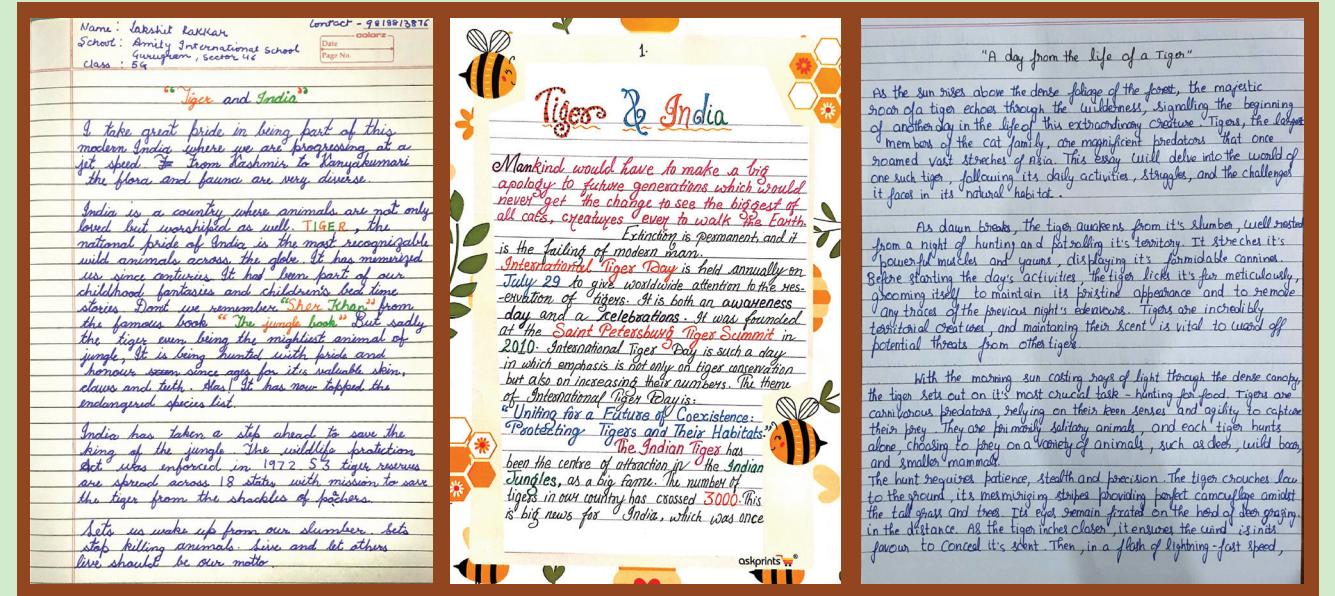 Name : Lakshit Kakkar
Contact - 9818813876
School : Amity International School
Gurugram, Sector 46
Class : 5G
colorz
Date
Page No.
"Tiger and India"
I take great pride in being part of this
modern India where we are progressing at a
jet speed from Kashmir to Kanyakumari
the flora and fauna are very diverse.
India is a country where animals are not only
loved but worshiped as well. TIGER, the
national pride of India is the most recognizable
wild animals across the globe. It has memerized
us since centuries. It had been part of our
childhood fantasies and children's bed time
stories Dont we remember "Sher Khan" from
the famous book "The jungle book" But sadly
the tiger even being the mightiest animal of
jungle, It is being hunted with pride and
honour since ages for it's valuable skin,
claws and teth. Alas! It has now topped the
endangered species list.
India has taken a step ahead to save the
king of the jungle. The wildlife protection
Act was enforced in 1972. 53 tiger reserves
are spread across 18 states with mission to save
the tiger from the shackles of pochers.
Lets us wake up from our slumber. Lets
stop killing animals. Live and let others
live should be our motto.
1.
Tiger & India
Mankind would have to make a big
apology to future generations which would
never get the change to see the biggest of
all cats, creatures ever to walk the Earth.
Extinction is permanent, and it
is the failing of modern man.
International Tiger Day is held annually on
July 29 to give worldwide attention to the res-
-ervation of tigers. It is both an awareness
day and a celebrations. It was founded
at the Saint Petersburg Tiger Summit in
2010. International Tiger Day is such a day
in which emphasis is not only on tiger conservation
but also on increasing their numbers. The theme
of International Tiger Day is:
"Uniting for a Future of Coexistence:
Protecting Tigers and Their Habitats."
The Indian Tiger has
been the centre of attraction in the Indian
Jungles, as a big fame. The number of
tigers in our country has crossed 3000. This
is big news for India, which was once
askprints
"A day from the life of a Tiger"
As the sun rises above the dense foliage of the forest, the majestic
roar of a tiger echoes through the wilderness, signalling the beginning
of another day in the life of this extraordinary creature. Tigers, the largest
members of the cat family, are magnificent predators that once
roamed vast streches of Asia. This essay will delve into the world of
one such tiger, following its daily activities, struggles, and the challenges
it faces in its natural habitat.
As dawn breaks, the tiger awakens from it's slumber, well rested
from a night of hunting and patrolling it's territory. It streches it's
powerful muscles and yawns, displaying its formidable cannines.
Before starting the day's activities, the tiger licks it's fur meticulously,
grooming itself to maintain its pristine appearance and to remove
any traces of the previous night's edeavours. Tigers are incredibly
territorial creatures, and maintaning their scent is vital to ward off
potential threats from other tigers.
With the morning sun casting rays of light through the dense canopy,
the tiger sets out on it's most crucial task - hunting for food. Tigers are
carnivorous predators, relying on their keen senses and agility to capture
their prey. They are primarily solitary animals, and each tiger hunts
alone, choosing to prey on a variety of animals, such as deer, wild boar,
and smaller mammals.
The hunt requires patience, stealth and precision. The tiger crouches low
to the ground, its mesmirizing stripes providing perfect camouflage amidst
the tall grass and trees. Its eyes remain fixated on the herd of deer grazing
in the distance. As the tiger inches closer, it ensures the wind is in its
favour to conceal it's scent. Then, in a flash of lightning-fast speed,